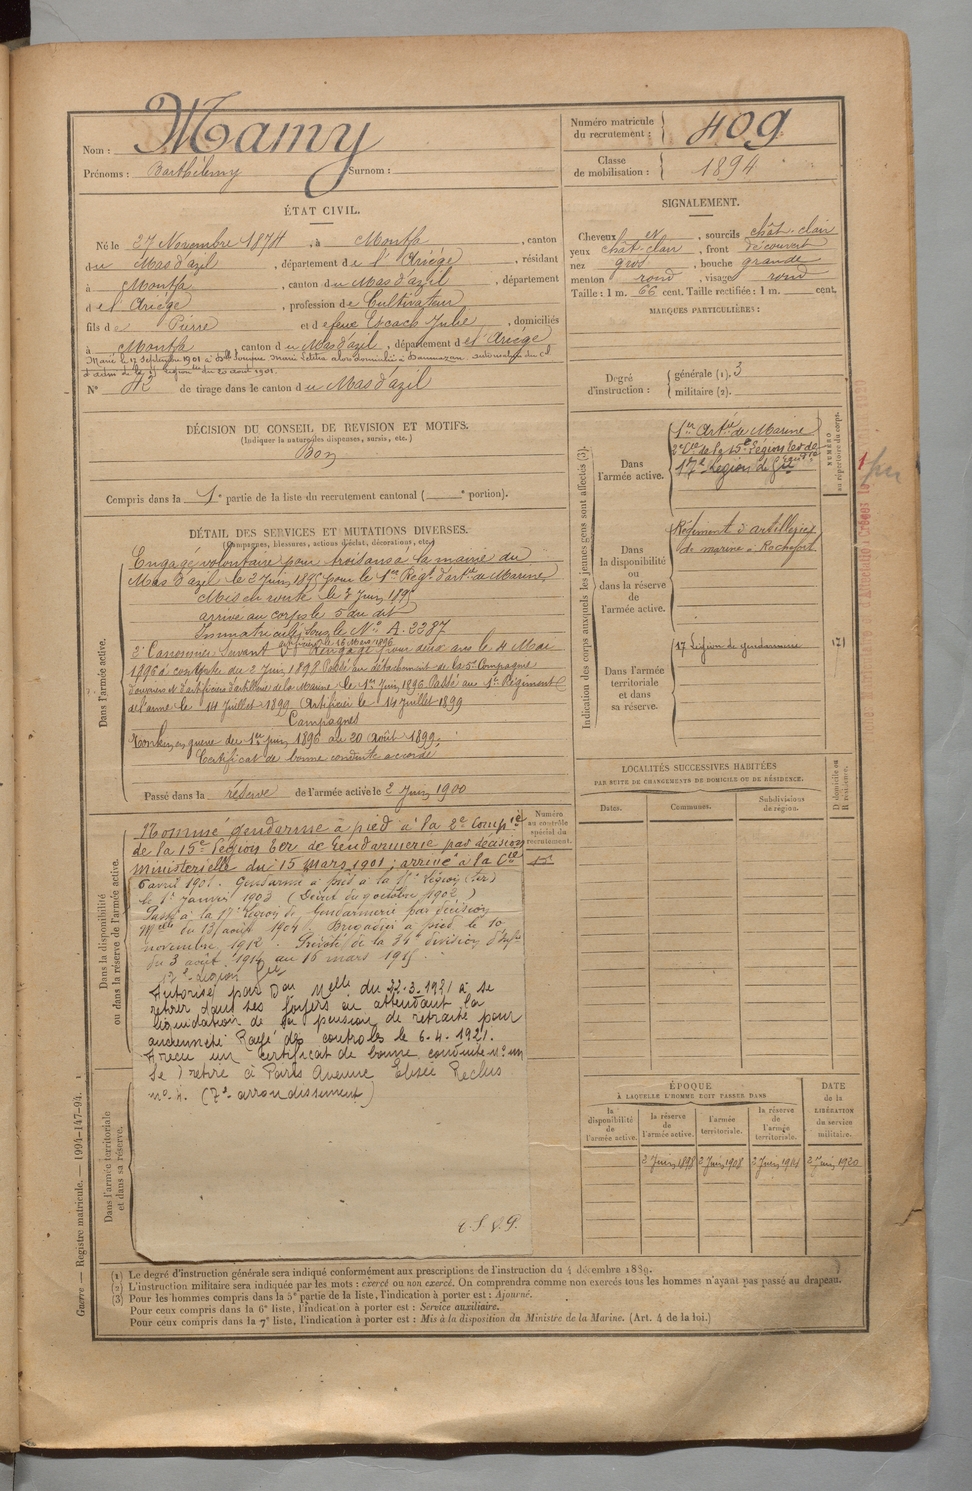 Nom : Mamy
Prénoms : Barthélemy Surnom :
Numéro matricule du recrutement : 409
Classe de mobilisation : 1894
ÉTAT CIVIL.
Né le 27 Novembre 1874, à Montfa, canton
du Mas d'azil, département de l'Ariège, résidant
à Montfa, canton du Mas d'azil, département
de l'Ariège, profession de Cultivateur
fils de Pierre et de feue Escach Julie, domiciliés
à Montfa, canton du Mas d'azil, département de l'Ariège
Marié le 17 Septembre 1901 à Dlle
N° 42 de tirage dans le canton du Mas d'azil
SIGNALEMENT.
Cheveux et, sourcils chât. clair
yeux chât. clair, front découvert
nez gros, bouche grande
menton rond, visage rond
Taille : 1 m. 66 cent. Taille rectifiée : 1 m. cent.
MARQUES PARTICULIÈRES :
Degré d'instruction : générale (1). 3
militaire (2).
DÉCISION DU CONSEIL DE REVISION ET MOTIFS.
(Indiquer la nature des dispenses, sursis, etc.)
Bon
Compris dans la 1e partie de la liste du recrutement cantonal ( portion).
DÉTAIL DES SERVICES ET MUTATIONS DIVERSES.
(Campagnes, blessures, actions d'éclat, décorations, etc.)
Dans l'armée active.
Engagé volontaire pour trois ans à la mairie du
Mas d'azil le 2 Juin 1895 pour le 1er Régt d'artie de Marine
Mis en route le 3 Juin 1895
arrivé au corps le 5 du dit
Immatriculé sous le N° A. 2287
2e Canonnier Servant Rengagé pour deux ans le 4 Mai
1896 à compter du 2 Juin 1898 Passé au détachement de la 5e Compagnie
d'ouvriers et d'artificiers d'artillerie de la Marine le 1er Juin 1896 Passé au 1er Régiment
de l'arme le 14 Juillet 1899 Artificier le 14 Juillet 1899
Campagnes
Tonkin en guerre du 1er juin 1896 au 20 Août 1899
Certificat de bonne conduite accordé
Passé dans la réserve de l'armée active le 2 Juin 1900
Dans la disponibilité ou dans la réserve de l'armée active.
Nommé gendarme à pied à la 2e Compie
de la 15e Légion ter de Gendarmerie par décision
ministérielle du 15 mars 1901; arrivé à la Cie
6 avril 1901. Gendarme à pied à la Légion (ter)
le 1er Janvier 1903 (Décret du 9 octobre 1902)
Passé à la 17e Légion de Gendarmerie par décision
Melle du 13 août 1904. Brigadier à pied le 10
novembre 1912. Prévôté de la 34e division d'Infie
du 3 août 1914 au 16 mars 1915.
17e Légion Gie
Autorisé par Don Melle du 22.3.1921 à se
retirer dans ses foyers en attendant la
liquidation de sa pension de retraite pour
ancienneté Rayé des contrôles le 6.4.1921.
A reçu un certificat de bonne conduite
Se retire à Paris Avenue Elisée Reclus
n° 4. (7e arrondissement)
T.S.V.P.
Dans l'armée territoriale et dans sa réserve.
Numéro au contrôle spécial du recrutement.
Indication des corps auxquels les jeunes gens sont affectés (3).
NUMÉRO au répertoire du corps.
Dans l'armée active.
1er Artie de Marine
2e Cie de la 15e Légion ter de
17e Légion de Gie
Dans la disponibilité ou dans la réserve de l'armée active.
Régiment d'artillerie
de marine à Rochefort
Dans l'armée territoriale et dans sa réserve.
17 Légion de gendarmerie 171
LOCALITÉS SUCCESSIVES HABITÉES
PAR SUITE DE CHANGEMENTS DE DOMICILE OU DE RÉSIDENCE.
Dates. Communes. Subdivisions de région. D domicile ou R résidence.
ÉPOQUE
À LAQUELLE L'HOMME DOIT PASSER DANS
la disponibilité de l'armée active. la réserve de l'armée active. l'armée territoriale. la réserve de l'armée territoriale.
DATE de la LIBÉRATION du service militaire.
2 Juin 1898 2 Juin 1908 2 Juin 1914 2 Juin 1920
(1) Le degré d'instruction générale sera indiqué conformément aux prescriptions de l'instruction du 4 décembre 1889.
(2) L'instruction militaire sera indiquée par les mots : exercé ou non exercé. On comprendra comme non exercés tous les hommes n'ayant pas passé au drapeau.
(3) Pour les hommes compris dans la 5e partie de la liste, l'indication à porter est : Ajourné.
Pour ceux compris dans la 6e liste, l'indication à porter est : Service auxiliaire.
Pour ceux compris dans la 7e liste, l'indication à porter est : Mis à la disposition du Ministre de la Marine. (Art. 4 de la loi.)
Guerre — Registre matricule. — 1994-147-94.